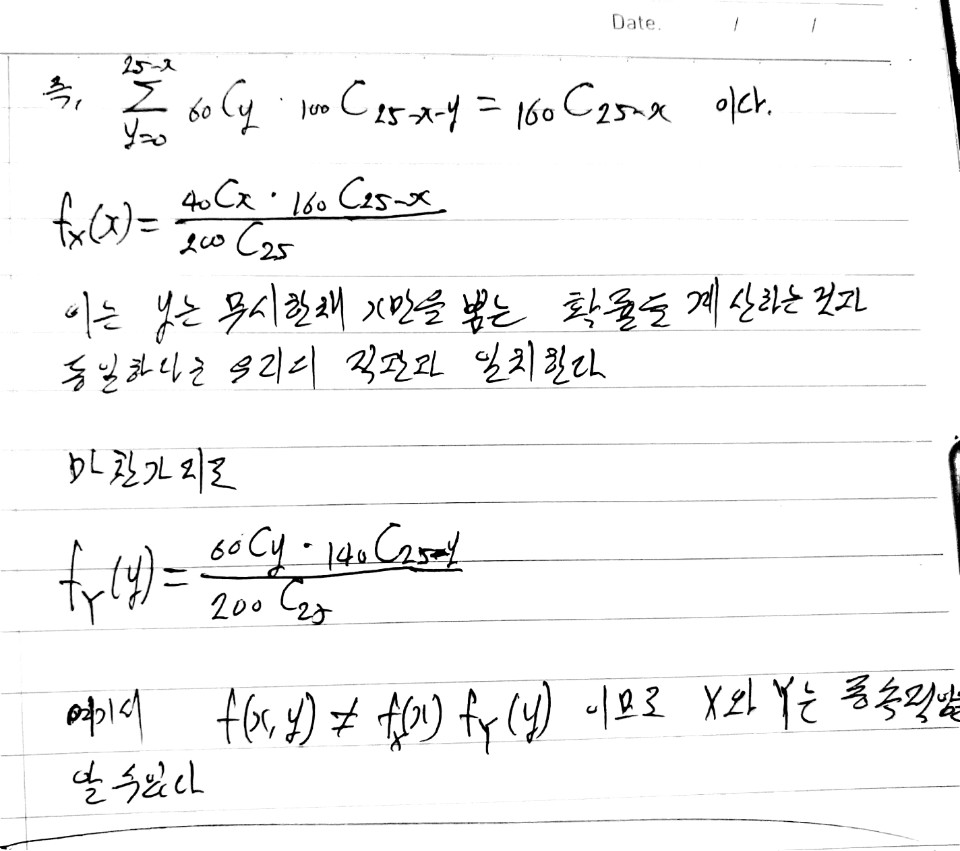 Date. / /
즉, 25-x Σ y=0 60Cy · 100C25-x-y = 160C25-x 이다.
fX(x) = 40Cx · 160C25-x / 200C25
이는 y는 무시한채 x만을 뽑는 확률을 계산하는 것과
동일하다는 우리의 직관과 일치한다
마찬가지로
fY(y) = 60Cy · 140C25-y / 200C25
여기서 f(x, y) ≠ fX(x) fY(y) 이므로 X와 Y는 종속적임을
알 수 있다